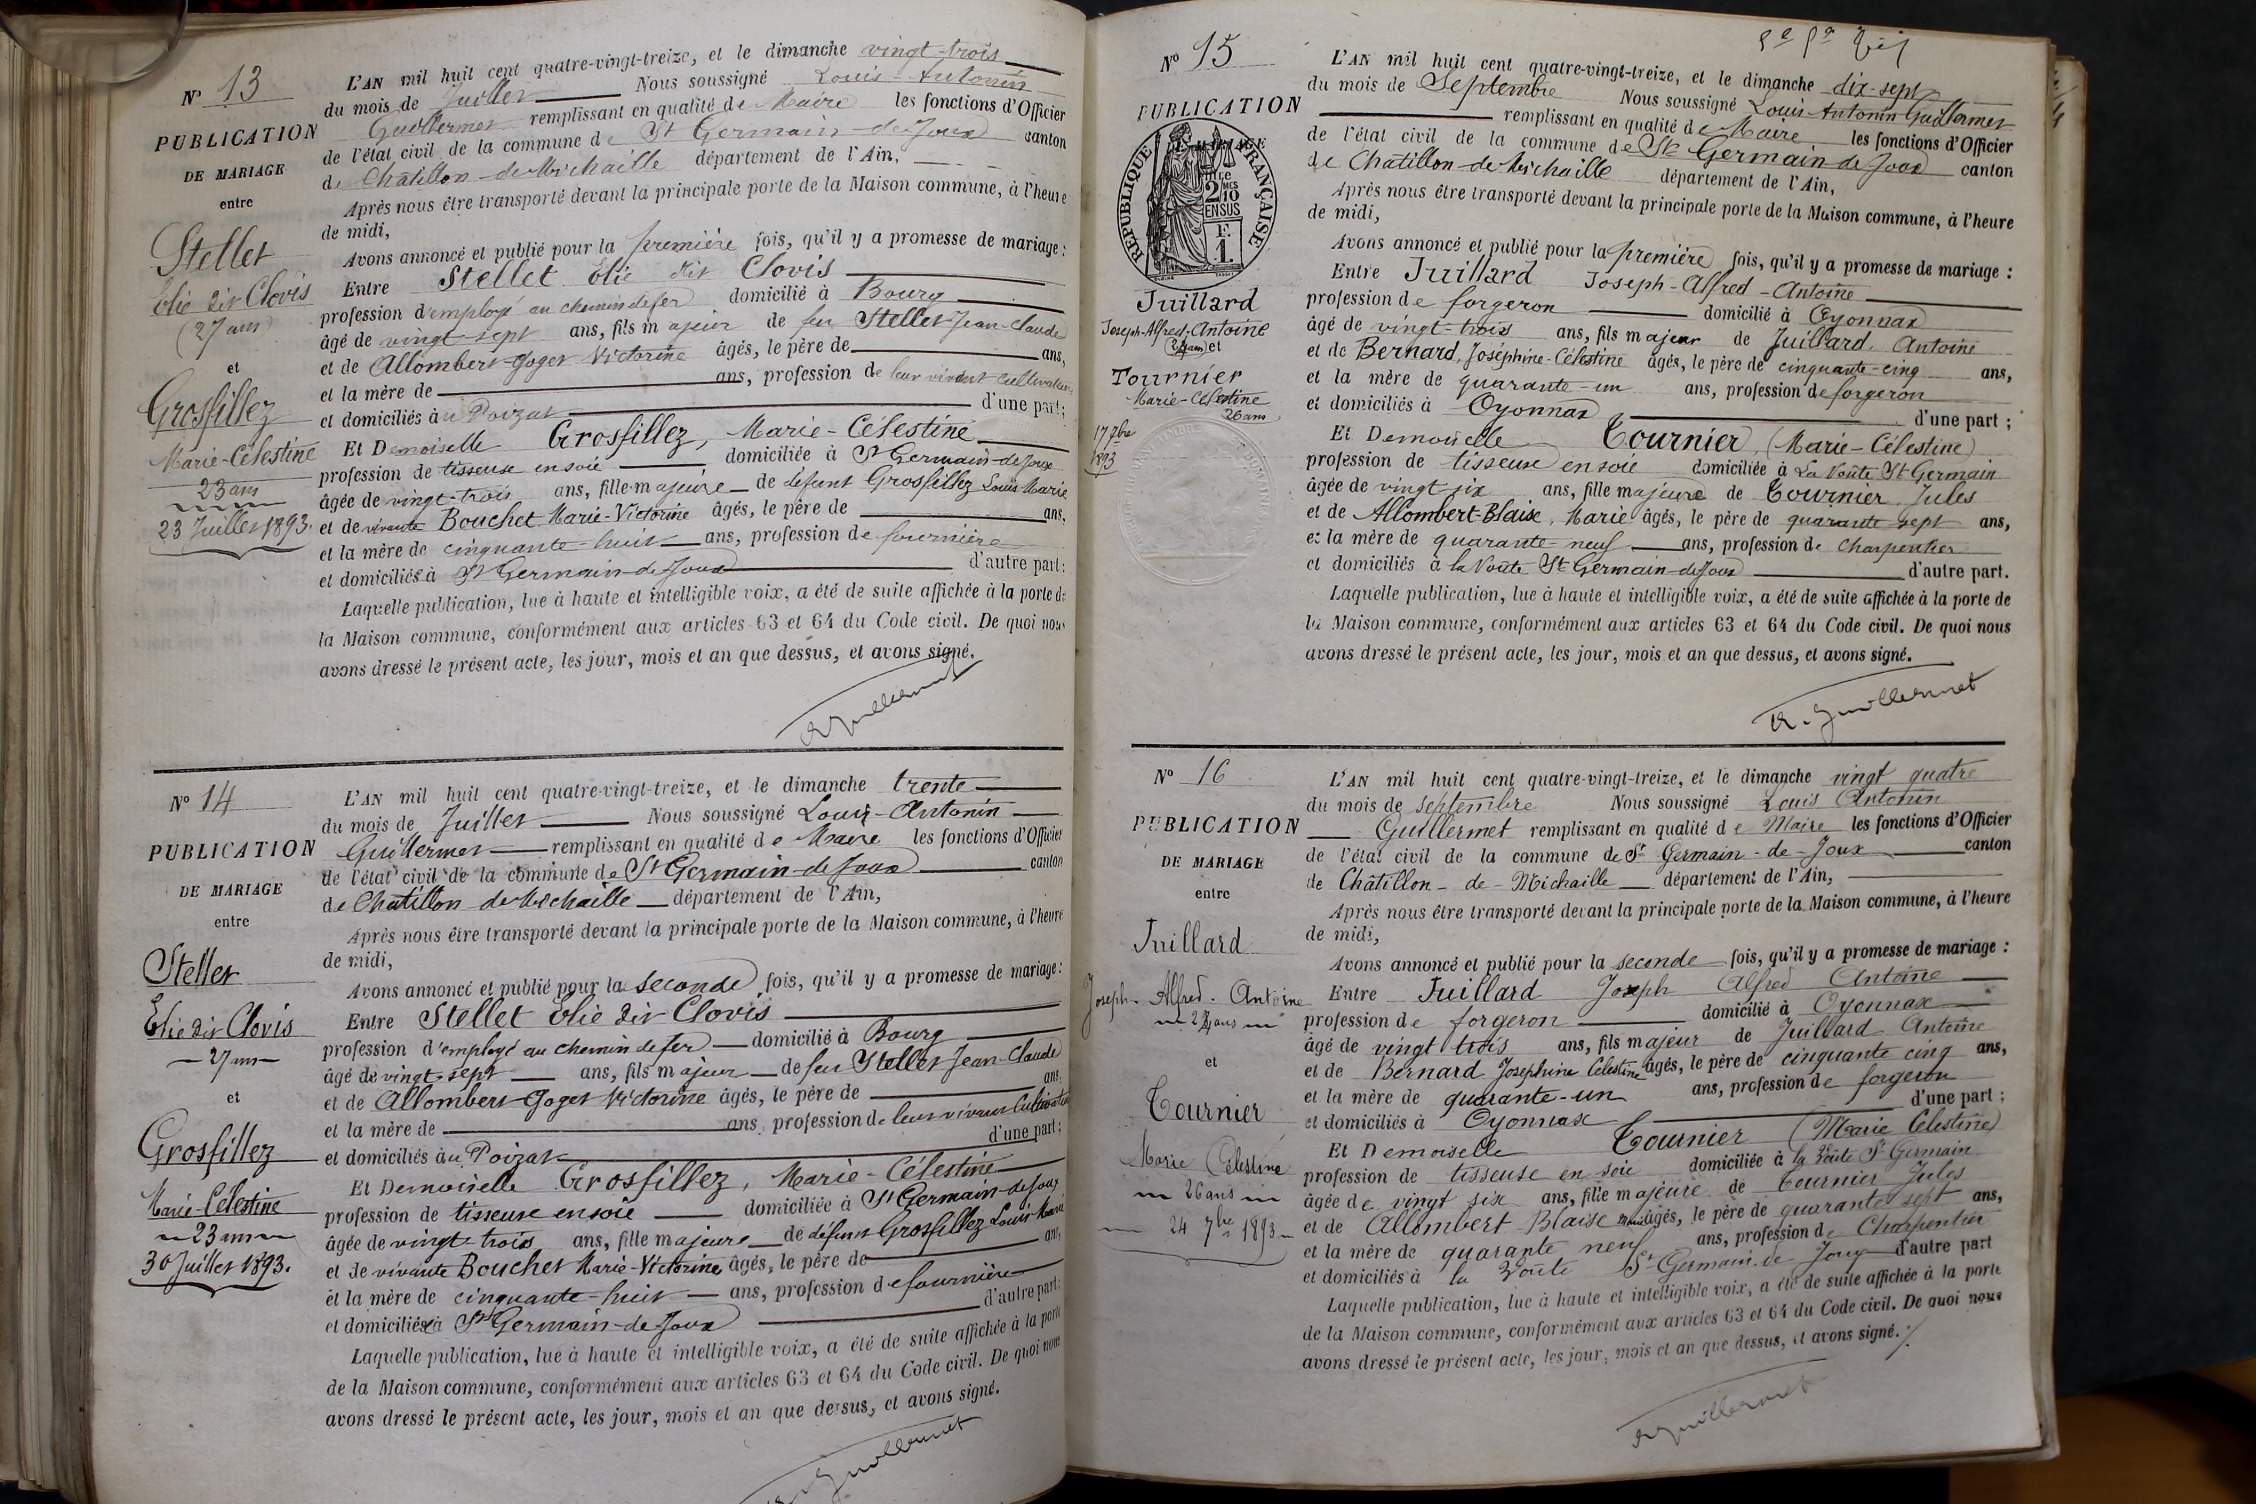 Nº 13
PUBLICATION
DE MARIAGE
entre
Stellet
Elie dit Clovis
(27 ans)
et
Grosfillez
Marie-Célestine
23 ans
23 Juillet 1893.
L'AN mil huit cent quatre-vingt-treize, et le dimanche vingt-trois
du mois de Juillet Nous soussigné Louis-Antonin
Guillermet remplissant en qualité de Maire les fonctions d'Officier
de l'état civil de la commune de St Germain-de-Joux canton
de Châtillon-de-Michaille département de l'Ain,
Après nous être transporté devant la principale porte de la Maison commune, à l'heure
de midi,
Avons annoncé et publié pour la première fois, qu'il y a promesse de mariage :
Entre Stellet Elie dit Clovis
profession d'employé au chemin de fer domicilié à Bourg
âgé de vingt-sept ans, fils majeur de feu Stellet Jean-Claude
et de Allombert-Goget Victorine âgés, le père de ans,
et la mère de ans, profession de leur vivant cultivateurs
et domiciliés au Poizat d'une part;
Et Demoiselle Grosfillez, Marie-Célestine
profession de tisseuse en soie domiciliée à St Germain-de-Joux
âgée de vingt-trois ans, fille majeure de défunt Grosfillez Louis Marie
et de vivante Bouchet Marie-Victorine âgés, le père de ans,
et la mère de cinquante-huit ans, profession de fournière
et domiciliés à St Germain-de-Joux d'autre part:
Laquelle publication, lue à haute et intelligible voix, a été de suite affichée à la porte de
la Maison commune, conformément aux articles 63 et 64 du Code civil. De quoi nous
avons dressé le présent acte, les jour, mois et an que dessus, et avons signé.
A. Guillermet
Nº 14
PUBLICATION
DE MARIAGE
entre
Stellet
Elie dit Clovis
27 ans
et
Grosfillez
Marie-Célestine
23 ans
30 Juillet 1893.
L'AN mil huit cent quatre-vingt-treize, et le dimanche trente
du mois de Juillet Nous soussigné Louis-Antonin
Guillermet remplissant en qualité de Maire les fonctions d'Officier
de l'état civil de la commune de St Germain-de-Joux canton
de Châtillon de Michaille département de l'Ain,
Après nous être transporté devant la principale porte de la Maison commune, à l'heure
de midi,
Avons annoncé et publié pour la seconde fois, qu'il y a promesse de mariage:
Entre Stellet Elie dit Clovis
profession d'employé au chemin de fer domicilié à Bourg
âgé de vingt-sept ans, fils majeur de feu Stellet Jean-Claude
et de Allombert-Goget Victorine âgés, le père de ans,
et la mère de ans, profession de leur vivant Cultivateurs
et domiciliés au Poizat d'une part;
Et Demoiselle Grosfillez, Marie-Célestine
profession de tisseuse en soie domiciliée à St Germain-de-Joux
âgée de vingt-trois ans, fille majeure de défunt Grosfillez Louis Marie
et de vivante Bouchet Marie-Victorine âgés, le père de ans,
et la mère de cinquante-huit ans, profession de fournière
et domiciliés à St Germain-de-Joux d'autre part:
Laquelle publication, lue à haute et intelligible voix, a été de suite affichée à la porte
de la Maison commune, conformément aux articles 63 et 64 du Code civil. De quoi nous
avons dressé le présent acte, les jour, mois et an que dessus, et avons signé.
A. Guillermet
Nº 15
PUBLICATION
DE MARIAGE
RÉPUBLIQUE FRANÇAISE
2 MES
10
EN SUS
F.
1.
Juillard
Joseph-Alfred-Antoine
et
Tournier
Marie-Célestine
26 ans
17 7bre
1893
L'AN mil huit cent quatre-vingt-treize, et le dimanche dix-sept
du mois de Septembre Nous soussigné Louis-Antonin Guillermet
remplissant en qualité de Maire les fonctions d'Officier
de l'état civil de la commune de St Germain de Joux canton
de Châtillon-de-Michaille département de l'Ain,
Après nous être transporté devant la principale porte de la Maison commune, à l'heure
de midi,
Avons annoncé et publié pour la première fois, qu'il y a promesse de mariage :
Entre Juillard Joseph-Alfred-Antoine
profession de forgeron domicilié à Oyonnax
âgé de vingt-trois ans, fils majeur de Juillard Antoine
et de Bernard, Joséphine-Célestine âgés, le père de cinquante-cinq ans,
et la mère de quarante-un ans, profession de forgeron
et domiciliés à Oyonnax d'une part ;
Et Demoiselle Tournier, (Marie-Célestine)
profession de tisseuse en soie domiciliée à La Voûte St Germain
âgée de vingt six ans, fille majeure de Tournier Jules
et de Allombert-Blaise, Marie âgés, le père de quarante sept ans,
et la mère de quarante-neuf ans, profession de Charpentier
et domiciliés à la Voûte St Germain-de-Joux d'autre part.
Laquelle publication, lue à haute et intelligible voix, a été de suite affichée à la porte de
la Maison commune, conformément aux articles 63 et 64 du Code civil. De quoi nous
avons dressé le présent acte, les jour, mois et an que dessus, et avons signé.
A. Guillermet
Nº 16
PUBLICATION
DE MARIAGE
entre
Juillard
Joseph-Alfred-Antoine
et
Tournier
Marie Célestine
26 ans
24 7bre 1893
L'AN mil huit cent quatre-vingt-treize, et le dimanche vingt quatre
du mois de Septembre Nous soussigné Louis Antonin
Guillermet remplissant en qualité de Maire les fonctions d'Officier
de l'état civil de la commune de St Germain-de-Joux canton
de Châtillon-de-Michaille département de l'Ain,
Après nous être transporté devant la principale porte de la Maison commune, à l'heure
de midi,
Avons annoncé et publié pour la seconde fois, qu'il y a promesse de mariage :
Entre Juillard Joseph Alfred Antoine
profession de forgeron domicilié à Oyonnax
âgé de vingt trois ans, fils majeur de Juillard Antoine
et de Bernard Josephine Célestine âgés, le père de cinquante cinq ans,
et la mère de quarante-un ans, profession de forgeron
et domiciliés à Oyonnax d'une part ;
Et Demoiselle Tournier (Marie Célestine)
profession de tisseuse en soie domiciliée à la Voûte St Germain
âgée de vingt six ans, fille majeure de Tournier Jules
et de Allombert-Blaise Marie âgés, le père de quarante sept ans,
et la mère de quarante neuf ans, profession de Charpentier
et domiciliés à la Voûte St Germain-de Joux d'autre part
Laquelle publication, lue à haute et intelligible voix, a été de suite affichée à la porte
de la Maison commune, conformément aux articles 63 et 64 du Code civil. De quoi nous
avons dressé le présent acte, les jour, mois et an que dessus, et avons signé.
A. Guillermet